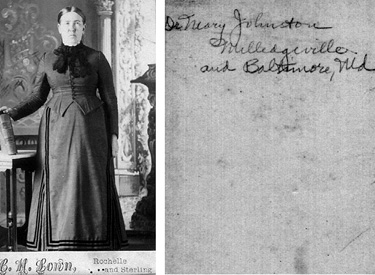 Dr Mary Johnston
Milledgeville
and Baltimore, Md
C. M. Lown,
Rochelle
and Sterling